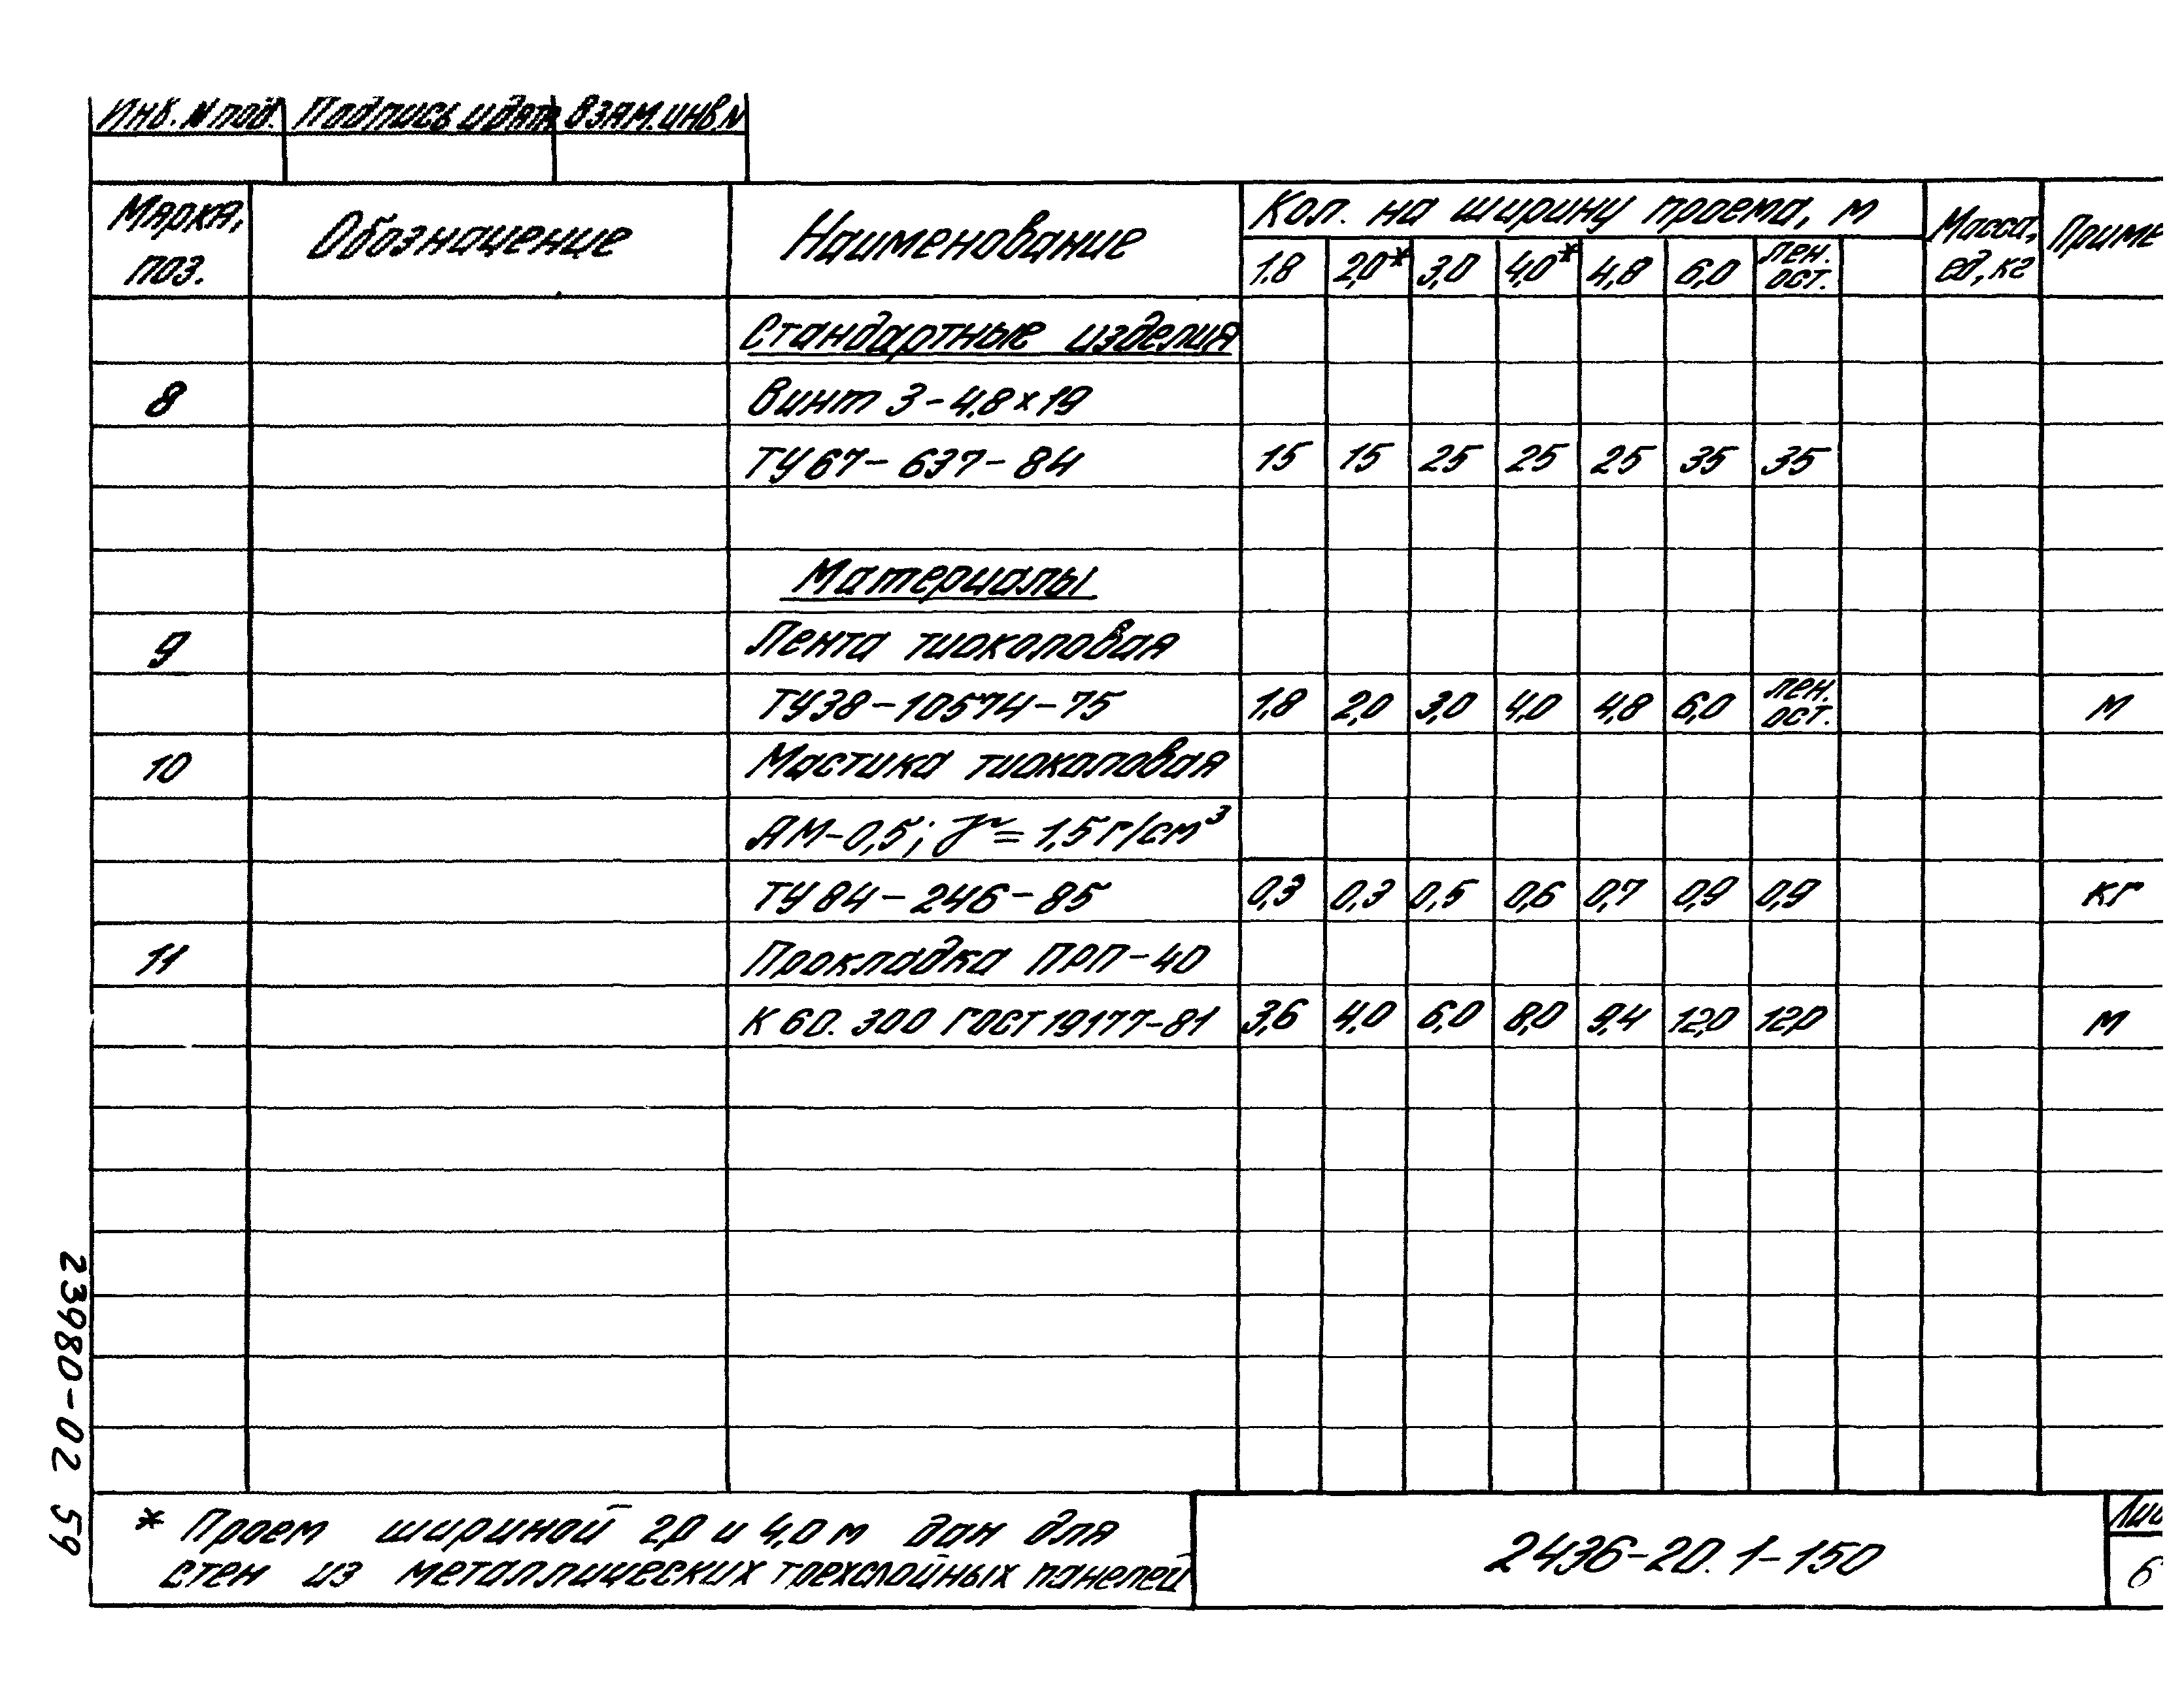 Инв. № под. Подпись и дата Взам. инв. №
Марка, поз. Обозначение Наименование Кол. на ширину проема, м Масса, ед, кг Приме
1.8 2,0* 3,0 4,0* 4,8 6,0 лен. ост.
Стандартные изделия
8 Винт 3-4,8×19
ТУ 67-637-84 15 15 25 25 25 35 35
Материалы
9 Лента тиоколовая
ТУ38-10574-75 1,8 2,0 3,0 4,0 4,8 6,0 лен. ост. м
10 Мастика тиоколовая
АМ-0,5; γ = 1,5 г/см³
ТУ 84-246-85 0,3 0,3 0,5 0,6 0,7 0,9 0,9 кг
11 Прокладка ПРП-40
К 60. 300 ГОСТ 19177-81 3,6 4,0 6,0 8,0 9,4 12,0 12,0 м
* Проем шириной 2,0 и 4,0 м дан для
стен из металлических трехслойных панелей
2436-20. 1-150
Лис
6
23980-02 59